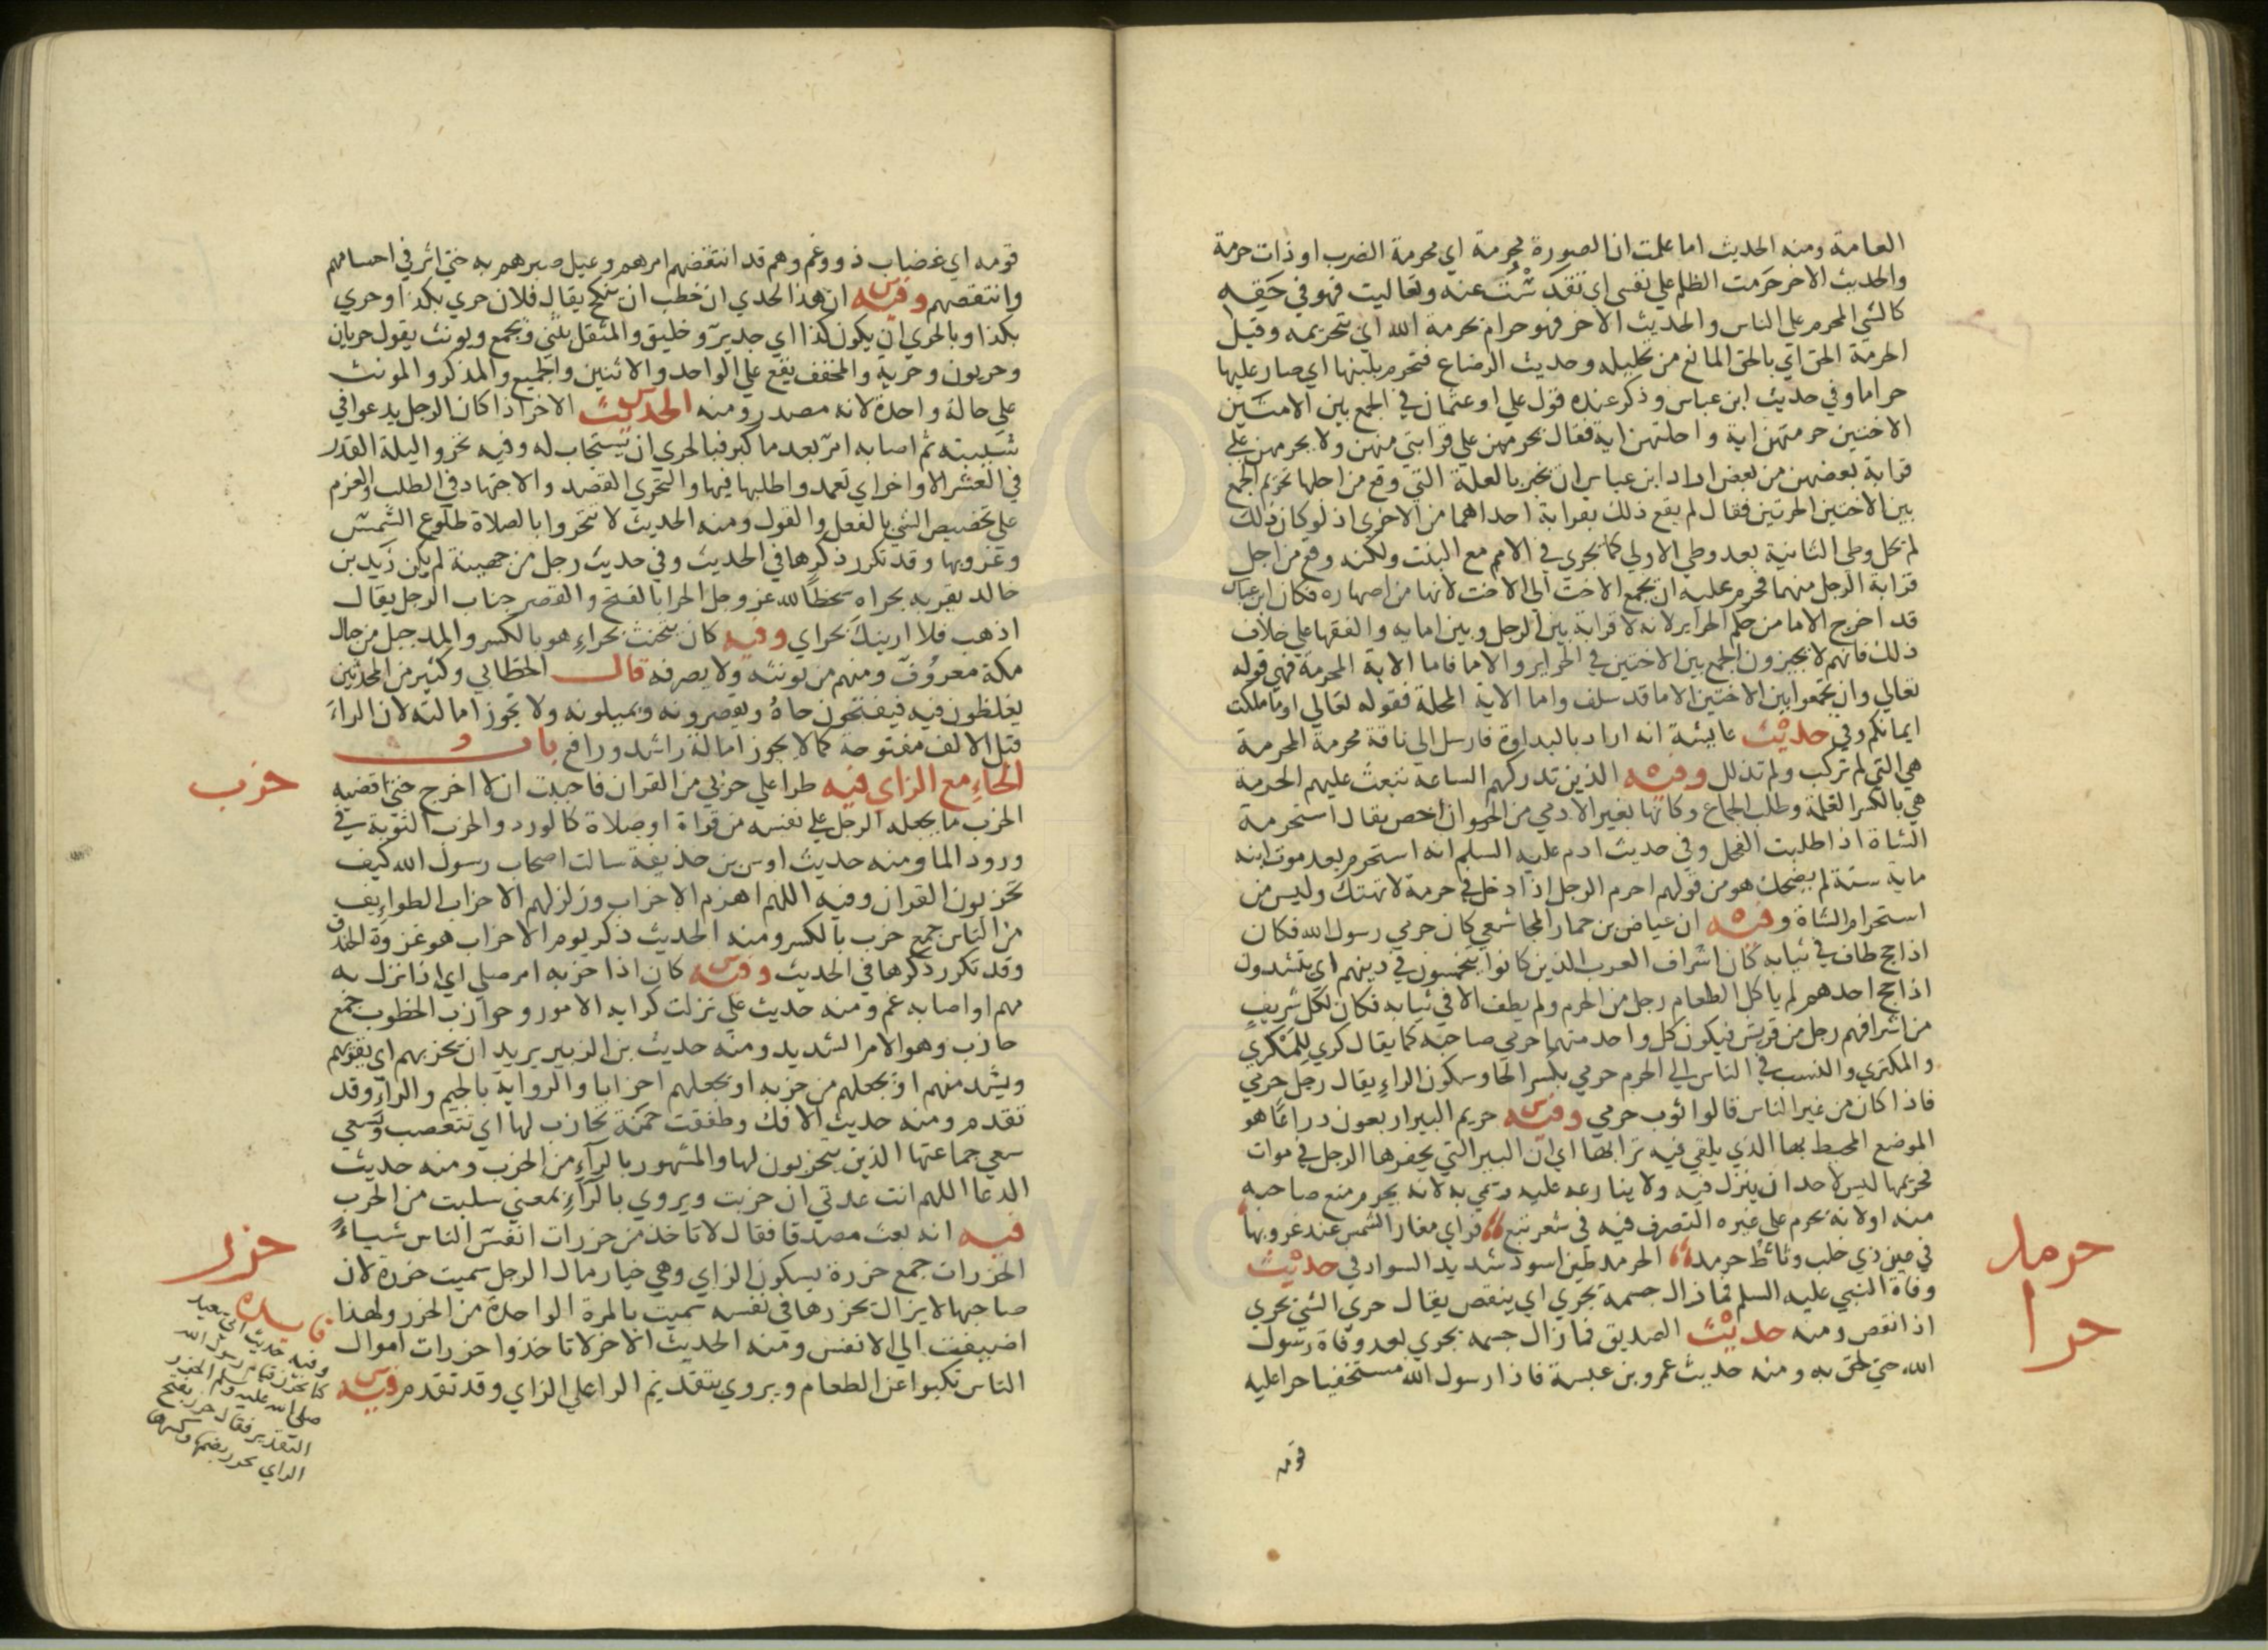 العامة ومنه الحديث اما علمت ان الصورة محرمة اي محرمة الضرب او ذات حرمة
والحديث الاخر حرمت الظلم علي نفسي اي تقدست عنه وتعاليت فهو في حقه
كالشي المحرم علي الناس والحديث الاخر فهو حرام بحرمة الله اي بتحريمه وقيل
الحرمة الحق اي بالحق المانع من تحليله وحديث الرضاع فتحرم بلبنها اي صار عليها
حراما وفي حديث ابن عباس وذكر عنده قول علي او عثمان في الجمع بين الامتين
الاختين حرمتهن اية واحلتهن اية فقال تحرمهن علي قرابتي منهن ولا يحرمهن علي
قرابة بعضهن من بعض اراد ابن عباس ان يخبر بالعلة التي وقع من اجلها تحريم الجمع
بين الاختين الحرتين فقال لم يقع ذلك بقرابة احداهما من الاخري اذ لو كان ذلك
لم يحل وطي الثانية بعد وطي الاولي كما يجري في الام مع البنت ولكنه وقع من اجل
قرابة الرجل منهما فحرم عليه ان يجمع الاخت الي الاخت لانها من اصهاره فكان ابن عباس
قد اخرج الاما من حكم الحراير لانه لا قرابة بين الرجل وبين امايه والفقها علي خلاف
ذلك فانهم لا يجيزون الجمع بين الاختين في الحراير والاما فاما الاية المحرمة فهي قوله
تعالي وان تجمعوا بين الاختين الا ما قد سلف واما الاية المحلة فقوله تعالي او ما ملكت
ايمانكم وفي حديث عايشة انه اراد بالبداوة فارسل الي ناقة محرمة المحرمة
هي التي لم تركب ولم تذلل وفيه الذين تدركهم الساعة تبعث عليهم الحرمة
هي بالكسر الغلمة وطلب الجماع وكانها بغير الادمي من الحيوان اخص يقال استحرمة
الشاة اذا طلبت الفحل وفي حديث ادم عليه السلم انه استحرم بعد موت ابنه
ماية سنة لم يضحك هو من قولهم احرم الرجل اذا دخل في حرمة لا تهتك وليس من
استحرام الشاة وفيه ان عياض بن حمار المجاشعي كان حرمي رسول الله فكان
اذا حج طاف في ثيابه كان اشراف العرب الذين كانوا يتحمسون في دينهم اي يتشددون
اذا حج احدهم لم ياكل الطعام رجل من الحرم ولم يطف الا في ثيابه فكان لكل شريف
من اشرافهم رجل من قريش فيكون كل واحد منهما حرمي صاحبه كما يقال كري للمكري
والمكتري والنسب في الناس الي الحرم حرمي بكسر الحا وسكون الراء يقال رجل حرمي
فاذا كان من غير الناس قالوا ثوب حرمي وفيه حريم البير اربعون دراعا هو
الموضع المحيط بها الذي يلقي فيه ترابها اي ان البير التي يحفرها الرجل في موات
فحريمها ليس لاحد ان ينزل فيه ولا ينازعه عليه وسمي به لانه يحرم منع صاحبه
منه او لانه يحرم علي غيره التصرف فيه في شعر تبع فراي مغار الشمس عند غروبها
في عين ذي خلب وثاط حرمد الحرمد طين اسود شديد السواد في حديث
وفاة النبي عليه السلم فما زال جسمه يحري اي ينقص يقال حري الشي يحري
اذا نقص ومنه حديث الصديق فما زال جسمه يحري بعد وفاة رسول
الله حتي لحق به ومنه حديث عمرو بن عبسة فاذا رسول الله مستخفيا حرا عليه
قومه
حرمد
حرا
قومه اي غضاب ذوو غم وهم قد انتقضهم امرهم وعيل صبرهم به حتي اثر في اجسامهم
وانتقصهم وفيه ان هذا لحري ان خطب ان ينكح يقال فلان حري بكذا وحري
بكذا وبالحري ان يكون كذا اي جدير وخليق والمثقل يثني ويجمع ويونث يقول حريان
وحريون وحرية والمخفف يقع علي الواحد والاثنين والجميع والمذكر والمونث
علي حالة واحدة لانه مصدر ومنه الحديث الاخر اذا كان الرجل يدعوا في
شبيبته ثم اصابه امر بعد ما كبر فبالحري ان يستجاب له وفيه تحروا ليلة القدر
في العشر الاواخر اي تعمدوا طلبها فيها والتحري القصد والاجتهاد في الطلب والعزم
علي تخصيص الشي بالفعل والقول ومنه الحديث لا تتحروا بالصلاة طلوع الشمس
وغروبها وقد تكرر ذكرها في الحديث وفي حديث رجل من جهينة لم يكن زيد بن
خالد يقربه بحراه سخطا لله عز وجل الحرا بالفتح والقصر جناب الرجل يقال
اذهب فلا ارينك بحراي وفيه كان يتحنث بحراء هو بالكسر والمد جبل من جبال
مكة معروف ومنهم من يونثه ولا يصرفه قال الخطابي وكثير من المحدثين
يغلطون فيه فيفتحون حاه ويقصرونه ويميلونه ولا يجوز امالته لان الراء
قبل الالف مفتوحة كما لا يجوز امالة راشد ورافع باب
الحاء مع الزاي فيه طرا علي حزبي من القران فاحببت ان لا اخرج حتي اقضيه
الحزب ما يجعله الرجل علي نفسه من قراة او صلاة كالورد والحزب النوبة في
ورود الما ومنه حديث اوس بن حذيفة سالت اصحاب رسول الله كيف
تحزبون القران وفيه اللهم اهزم الاحزاب وزلزلهم الاحزاب الطوايف
من الناس جمع حزب بالكسر ومنه الحديث ذكر يوم الاحزاب هو غزوة الخندق
وقد تكرر ذكرها في الحديث وفيه كان اذا حزبه امر صلي اي اذا نزل به
مهم او اصابه غم ومنه حديث علي نزلت كرايه الامور وحوازب الخطوب جمع
حازب وهو الامر الشديد ومنه حديث بن الزبير يريد ان يحزبهم اي يقويهم
ويشد منهم او يجعلهم من حزبه او يجعلهم احزابا والرواية بالجيم والراء وقد
تقدم ومنه حديث الافك وطفقت حمنة تحازب لها اي تتعصب وتسعي
سعي جماعتها الذين يتحزبون لها والمشهور بالراء من الحرب ومنه حديث
الدعا اللهم انت عدتي ان حزبت ويروي بالراء بمعني سلبت من الحرب
فيه انه بعث مصدقا فقال لا تاخذ من حزرات انفس الناس شياء
الحزرات جمع حزرة بسكون الزاي وهي خيار مال الرجل سميت حزرة لان
صاحبها لا يزال يحزرها في نفسه سميت بالمرة الواحدة من الحزر ولهذا
اضيفت الي الانفس ومنه الحديث الاخر لا تاخذوا حزرات اموال
الناس نكبوا عن الطعام ويروي بتقديم الرا علي الزاي وقد تقدم فيه
حزب
حزر
فايده
وفيه حديث ابي سعيد
كنا نحزر قيام رسول الله
صلى الله عليه وسلم الحزر
التقدير فقال حزر بفتح
الزاي يحزر بضمها وكسرها